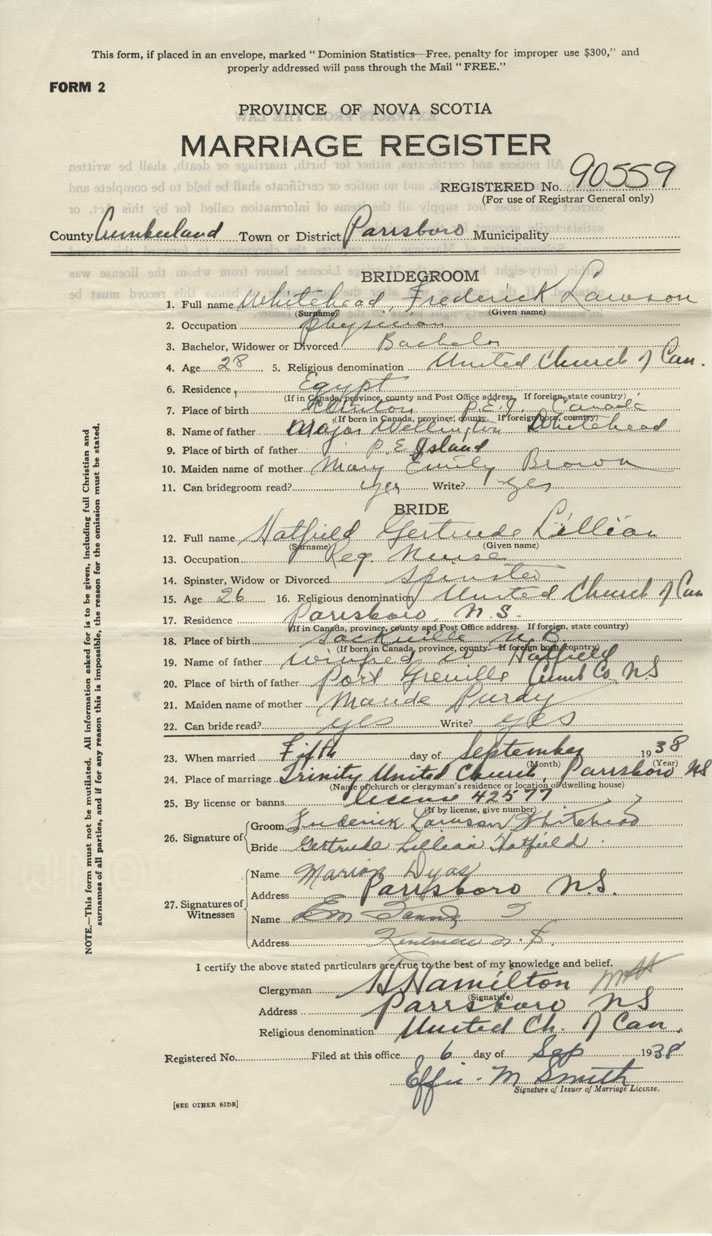 This form, if placed in an envelope, marked "Dominion Statistics—Free, penalty for improper use $300," and
properly addressed will pass through the Mail "FREE."
FORM 2
PROVINCE OF NOVA SCOTIA
MARRIAGE REGISTER
REGISTERED No. 90559
(For use of Registrar General only)
County Cumberland Town or District Parrsboro Municipality
BRIDEGROOM
1. Full name Whitehead, Frederick Lawson
(Surname) (Given name)
2. Occupation Physician
3. Bachelor, Widower or Divorced Bachelor
4. Age 28 5. Religious denomination United Church of Can.
6. Residence Egypt
(If in Canada, province, county and Post Office address. If foreign, state country)
7. Place of birth P.E.I. Canada
(If born in Canada, province, county. If foreign born, country)
8. Name of father Major Wellington Whitehead
9. Place of birth of father P.E Island
10. Maiden name of mother Mary Emily Brown
11. Can bridegroom read? yes Write? yes
BRIDE
12. Full name Hatfield Gertrude Lillian
(Surname) (Given name)
13. Occupation Reg. Nurse
14. Spinster, Widow or Divorced Spinster
15. Age 26 16. Religious denomination United Church of Can
17. Residence Parrsboro N.S.
(If in Canada, province, county and Post Office address. If foreign, state country)
18. Place of birth Sackville N.B.
(If born in Canada, province, county. If foreign born, country)
19. Name of father Winfred W Hatfield
20. Place of birth of father Port Greville Cumb Co. NS
21. Maiden name of mother Maude Purdy
22. Can bride read? yes Write? yes
23. When married Fifth day of September 1938
(Month) (Year)
24. Place of marriage Trinity United Church, Parrsboro NS
(Name of church or clergyman's residence or location of dwelling house)
25. By license or banns license 42577
(If by license, give number)
26. Signature of Groom Frederick Lawson Whitehead
Bride Gertrude Lillian Hatfield
27. Signatures of Witnesses
Name Marion Dyas
Address Parrsboro N.S.
Name
Address N.S.
I certify the above stated particulars are true to the best of my knowledge and belief.
Clergyman Hamilton
(Signature)
Address Parrsboro NS
Religious denomination United Ch. of Can.
Registered No. Filed at this office 6 day of Sep 1938
Effie M Smith
Signature of Issuer of Marriage License.
[SEE OTHER SIDE]
NOTE.—This form must not be mutilated. All information asked for is to be given, including full Christian and
surnames of all parties, and if for any reason this is impossible, the reason for the omission must be stated.